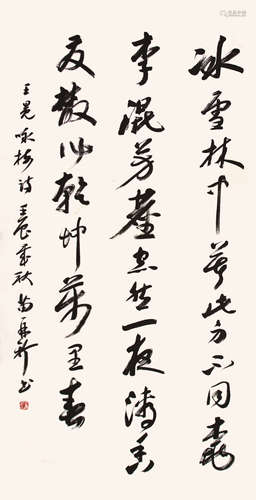 冰雪林中著此身不同桃
李混芳塵忽然一夜清香
发散作乾坤萬里春
王冕咏梅诗 秋 书